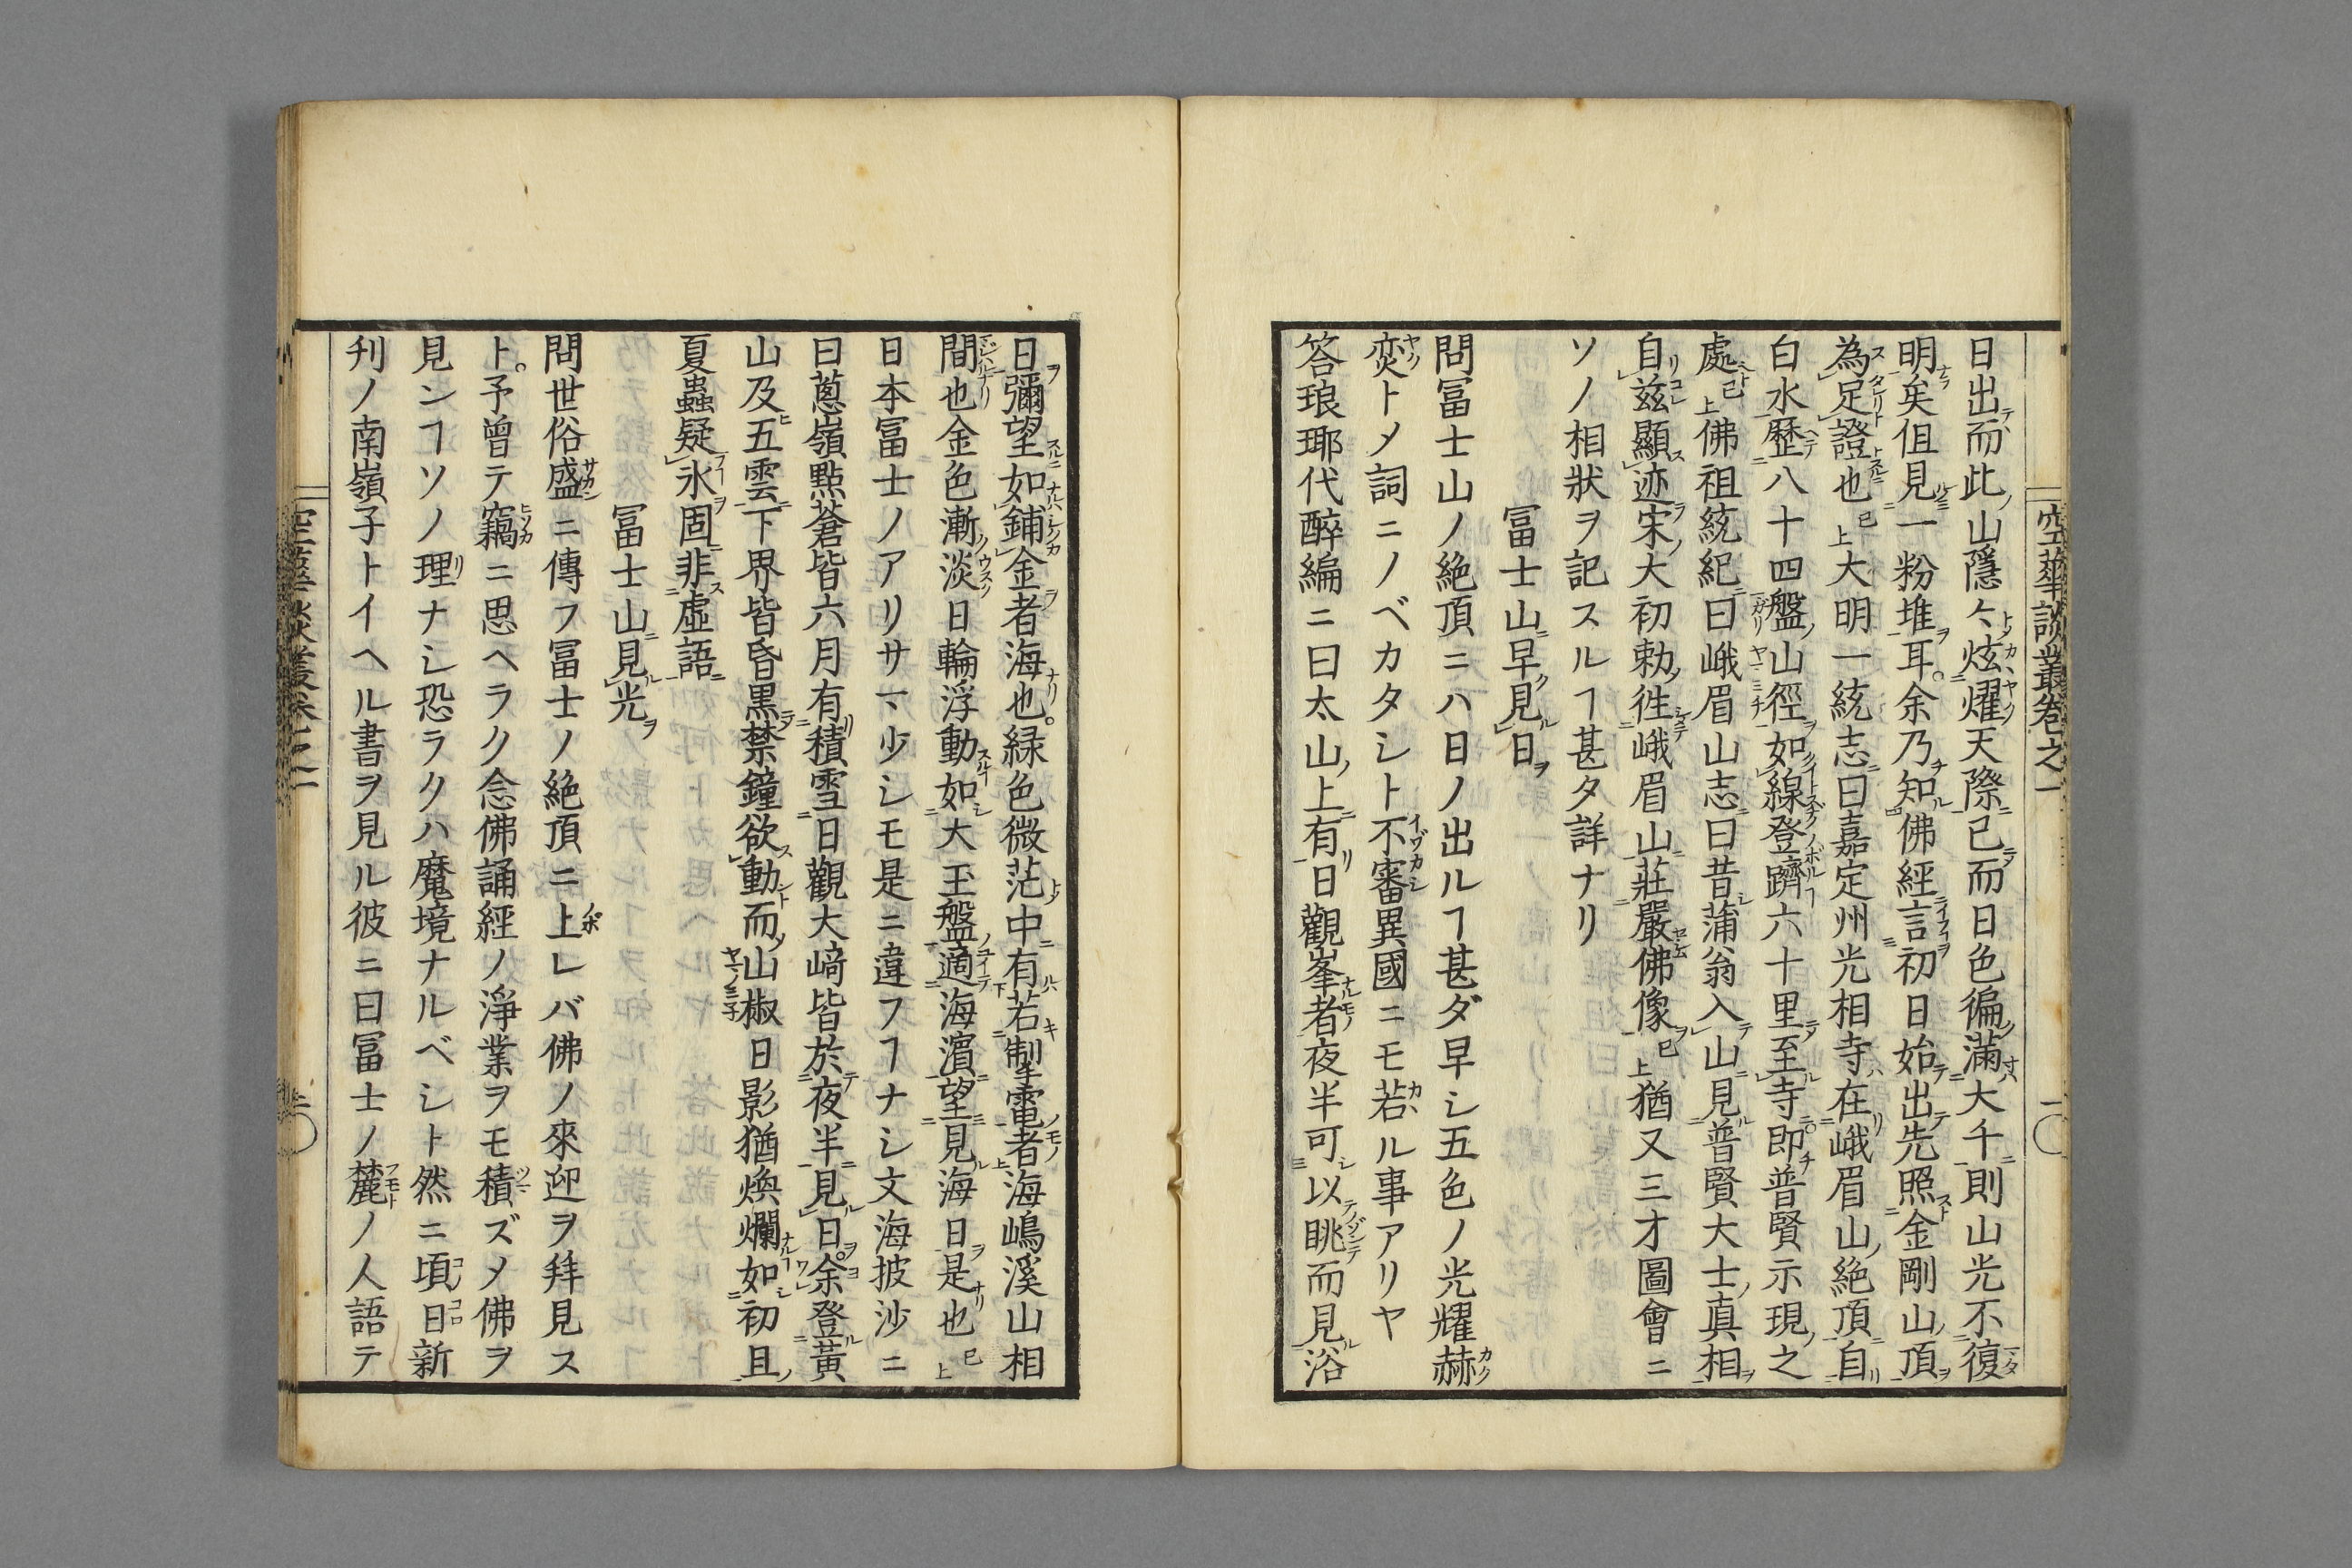 空華談叢卷之一
一〇
日出而此山隱々炫燿天際已而日色徧滿大千則山光不復
明矣但見一粉堆耳。余乃知佛經言初日始出先照金剛山頂
為足證也已上大明一統志曰嘉定州光相寺在峨眉山絶頂自
白水歷八十四盤山徑如線登躋六十里至寺即普賢示現之
處已上佛祖統紀曰峨眉山志曰昔蒲翁入山見普賢大士真相
自玆顯迹宋大初勅徃峨眉山莊嚴佛像已上猶又三才圖會ニ
ソノ相狀ヲ記スルヿ甚タ詳ナリ
冨士山早見日
問冨士山ノ絶頂ニハ日ノ出ルヿ甚ダ早シ五色ノ光耀赫
奕トメ詞ニノベカタシト不審異國ニモ若ル事アリヤ
答琅瑘代醉編ニ曰太山上有日觀峯者夜半可以眺而見浴
日彌望如鋪金者海也。緑色微茫中有若掣電者海嶋溪山相
間也金色漸淡日輪浮動如大玉盤適海濵望見海日是也已上
日本冨士ノアリサマ少シモ是ニ違フヿナシ文海披沙ニ
曰蔥嶺點蒼皆六月有積雪日觀大﨑皆於夜半見日。余登黃
山及五雲下界皆昏黒禁鐘欲動而山椒日影猶煥爛如初且
夏蟲疑氷固非虛語
冨士山見光
問世俗盛ニ傳フ冨士ノ絶頂ニ上レバ佛ノ來迎ヲ拜見ス
ト。予曾テ竊ニ思ヘラク念佛誦經ノ淨業ヲモ積ズメ佛ヲ
見ンヿソノ理ナシ恐ラクハ魔境ナルベシト然ニ頃日新
刋ノ南嶺子トイヘル書ヲ見ル彼ニ曰冨士ノ麓ノ人語テ